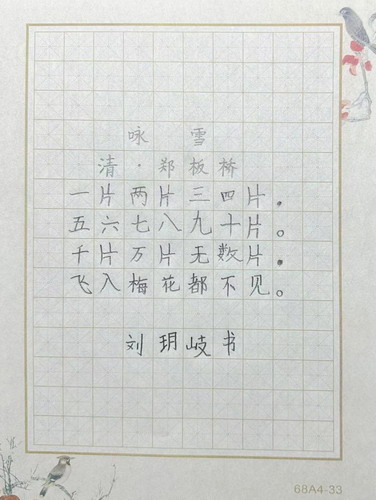 咏雪
清·郑板桥
一片两片三四片。
五六七八九十片。
千片万片无数片。
飞入梅花都不见。
刘玥岐书
68A4-33